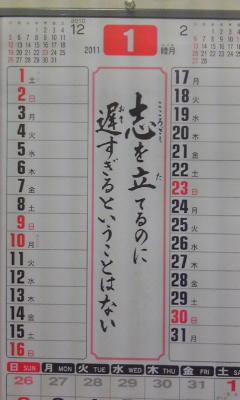 2010
12
2011
1
睦月
2
志を立てるのに
こころざし
た
遅すぎるということはない
おそ
1 土
2 日
3 月
4 火
5 水
6 木
7 金
8 土
9 日
10 月
11 火
12 水
13 木
14 金
15 土
16 日
17 月
18 火
19 水
20 木
21 金
22 土
23 日
24 月
25 火
26 水
27 木
28 金
29 土
30 日
31 月
日 SUN 月 MON 火 TUE 水 WED 木 THU 金 FRI 土 SAT
26 27 28 29 30 31 1